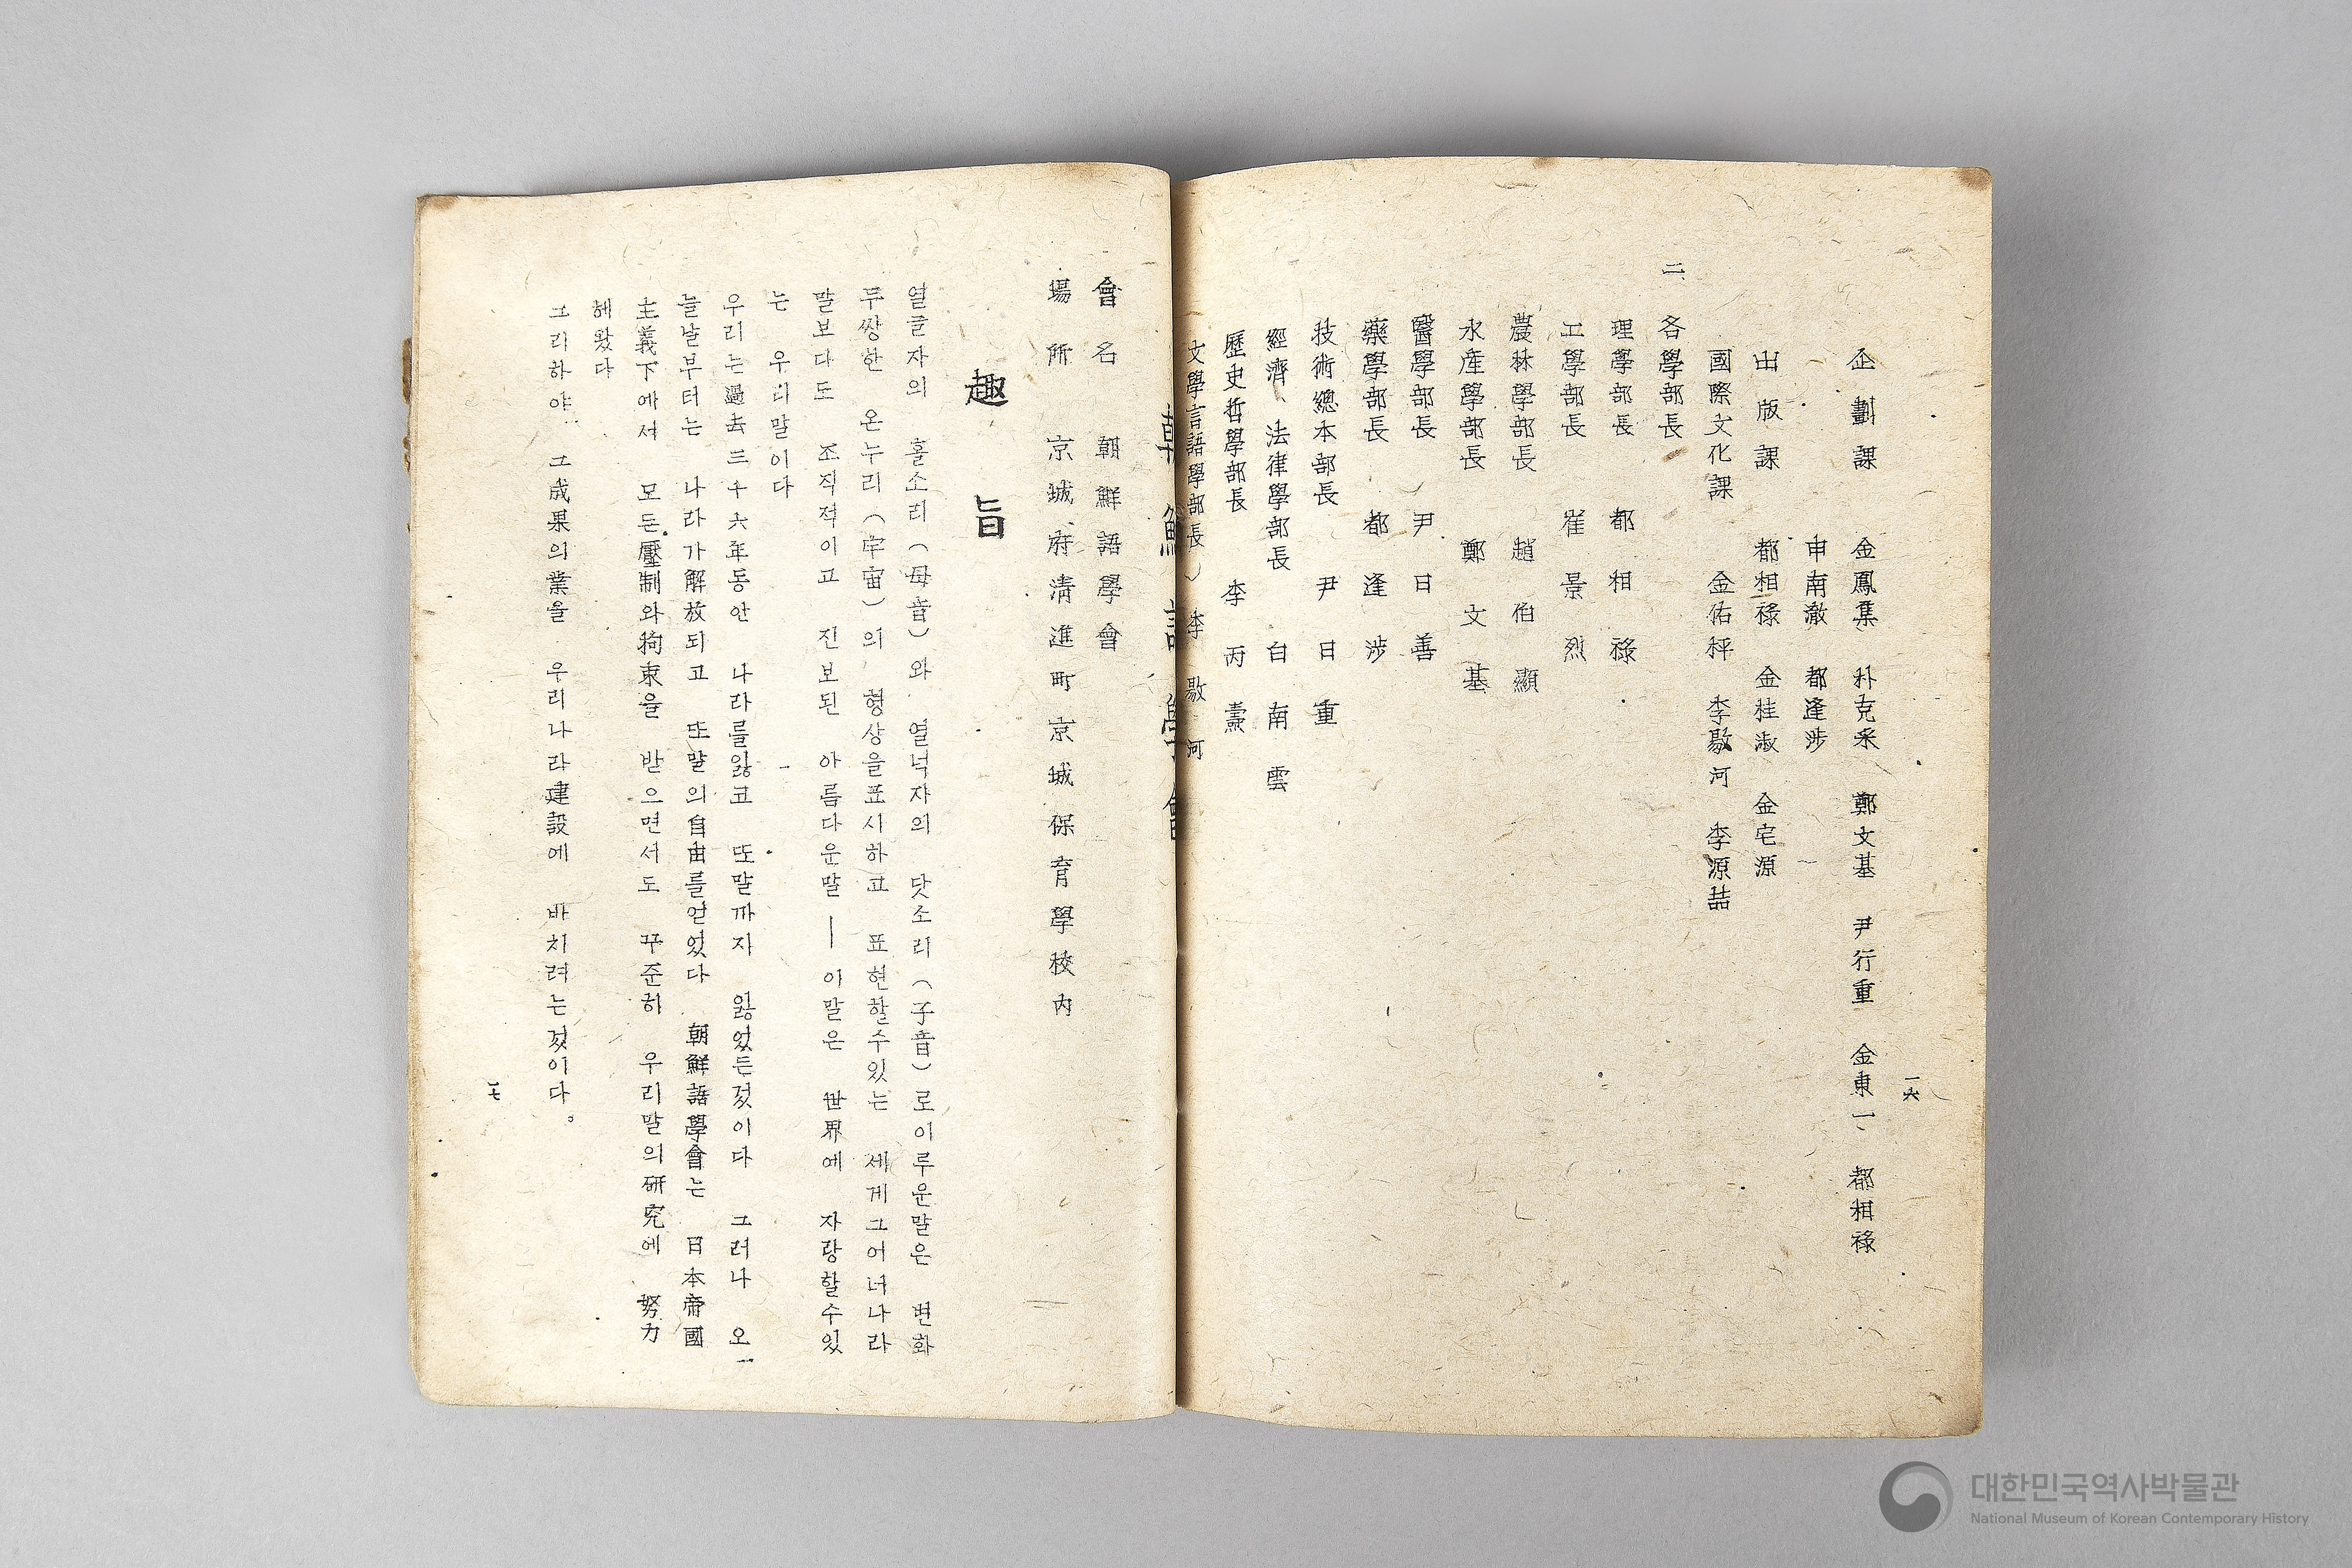 一六
企劃課 金鳳集 朴克采 鄭文基 尹行重 金東一、 都相祿
申南澈 都逢涉
出版課 都相祿 金桂淑 金宅源
國際文化課 金佑枰 李敭河 李源喆
二 各學部長
理學部長 都相祿
工學部長 崔景烈
農林學部長 趙伯顯
水産學部長 鄭文基
醫學部長 尹日善
藥學部長 都逢涉
技術總本部長 尹日重
經濟、法律學部長 白南雲
歷史哲學部長 李丙燾
文學言語學部長 李敭河
朝鮮語學會
會名 朝鮮語學會
場所 京城府淸進町京城保育學校內
趣旨
열글자의 홀소리(母音)와 열넉자의 닷소리(子音)로이루운말은 변화
무쌍한 온누리(宇宙)의 형상을표시하고 표현할수있는 세게그어너나라
말보다도 조직적이고 진보된 아름다운말―이말은 世界에 자랑할수있
는 우리말이다
우리는過去三十六年동안 나라를잃고 또말까지 잃었든것이다 그러나 오
늘날부터는 나라가解放되고 또말의自由를얻었다 朝鮮語學會는 日本帝國
主義下에서 모든壓制와拘束을 받으면서도 꾸준히 우리말의硏究에 努力
헤왔다
그리하야 그成果의業을 우리나라建設에 바치려는것이다。
一七
대한민국역사박물관
National Museum of Korean Contemporary History